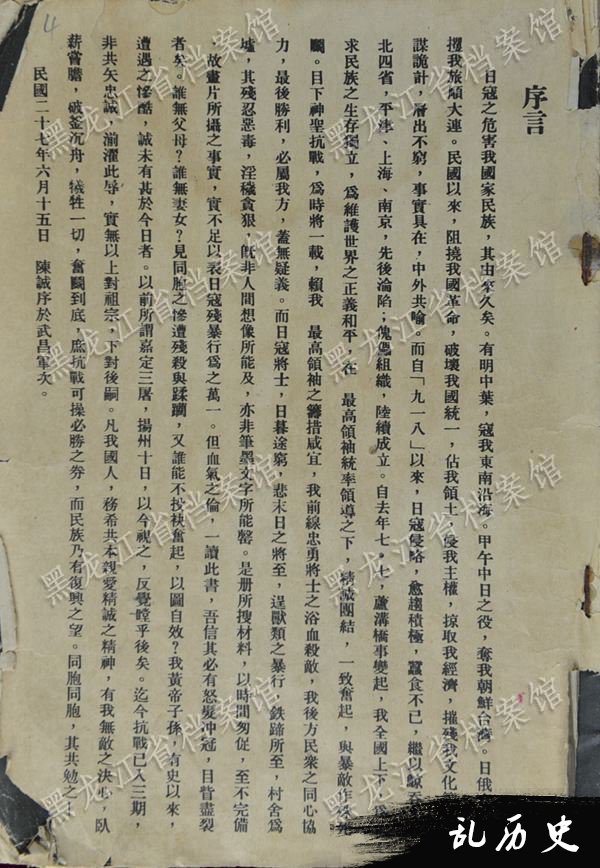 4
序言
日寇之危害我國家民族，其由來久矣。有明中葉，寇我東南沿海。甲午中日之役，奪我朝鮮台灣。日俄
攫我旅順大連。民國以來，阻撓我國革命，破壞我國統一，佔我領土，侵我主權，掠取我經濟，摧殘我文化
謀詭計，層出不窮，事實具在，中外共喻。而自「九一八」以來，日寇侵略，愈趨積極，蠶食不已，繼以鯨吞
北四省，平津、上海、南京，先後淪陷；傀儡組織，陸續成立。自去年七．七，蘆溝橋事變起，我全國上下，爲
求民族之生存獨立，爲維護世界之正義和平，在　最高領袖統率領導之下，精誠團結，一致奮起，與暴敵作殊死
鬭。目下神聖抗戰，爲時將一載，賴我　最高領袖之籌措咸宜，我前線忠勇將士之浴血殺敵，我後方民衆之同心協
力，最後勝利，必屬我方，蓋無疑義。而日寇將士，日暮途窮，悲末日之將至，逞獸類之暴行，鉄蹄所至，村舍爲
墟，其殘忍惡毒，淫穢貪狠，旣非人間想像所能及，亦非筆墨文字所能罄。是册所搜材料，以時間匆促，至不完備
，故畫片所攝之事實，實不足以表日寇殘暴行爲之萬一。但血氣之倫，一讀此書，吾信其必有怒髮冲冠，目眥盡裂
者矣。誰無父母？誰無妻女？見同胞之慘遭殘殺與蹂躪，又誰能不投袂奮起，以圖自效？我黃帝子孫，有史以來，
遭遇之慘酷，誠未有甚於今日者。以前所謂嘉定三屠，揚州十日，以今視之，反覺瞠乎後矣。迄今抗戰已入三期，
非共矢忠誠，湔濯此辱，實無以上對祖宗，下對後嗣。凡我國人，務希共本親愛精誠之精神，有我無敵之決心，臥
薪嘗膽，破釜沉舟，犧牲一切，奮鬭到底，庶抗戰可操必勝之券，而民族乃有復興之望。同胞同胞，其共勉之！
民國二十七年六月十五日　陳誠序於武昌軍次。
黑龙江省档案馆
乱历史